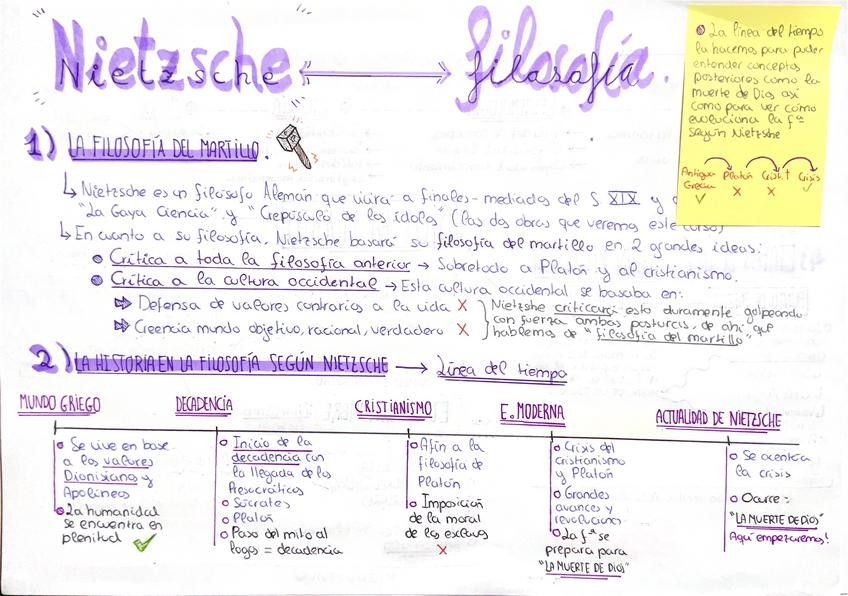 Nietzsche ⟷ filosofía.
La línea del tiempo
la hacemos para poder
entender conceptos
posteriores como la
muerte de Dios así
como para ver cómo
evoluciona la fª
según Nietzsche
Antigua Grecia ✓ Platón X Crist X Crisis ✓
1) LA FILOSOFÍA DEL MARTILLO.
↳ Nietzsche es un filósofo Alemán que vivirá a finales-mediados del S XIX y
"La Gaya Ciencia" y "Crepúsculo de los ídolos" (las dos obras que veremos este curso)
↳ En cuanto a su filosofía, Nietzsche basará su filosofía del martillo en 2 grandes ideas:
• Crítica a toda la filosofía anterior → Sobretodo a Platón y al cristianismo.
• Crítica a la cultura occidental → Esta cultura occidental se basaba en:
⇒ Defensa de valores contrarios a la vida X
⇒ Creencia mundo objetivo, racional, verdadero X
Nietzshe criticará esto duramente golpeando
con fuerza ambas posturas, de ahí que
hablemos de "filosofía del martillo"
2) LA HISTORIA EN LA FILOSOFÍA SEGÚN NIETZSCHE → Línea del tiempo
MUNDO GRIEGO
Se vive en base
a los valores
Dionisiano y
Apolíneos
La humanidad
se encuentra en
plenitud ✓
DECADENCIA
Inicio de la
decadencia con
la llegada de los
Presocráticos
Sócrates
Platón
Paso del mito al
logos = decadencia
CRISTIANISMO
Afín a la
filosofía de
Platón
Imposición
de la moral
de los esclavos
X
E. MODERNA
Crisis del
cristianismo
y Platón
Grandes
avances y
revoluciones
La fª se
prepara para
"LA MUERTE DE DIOS"
ACTUALIDAD DE NIETZSCHE
Se acentúa
la crisis
Ocurre:
"LA MUERTE DE DIOS"
Aquí empezaremos!